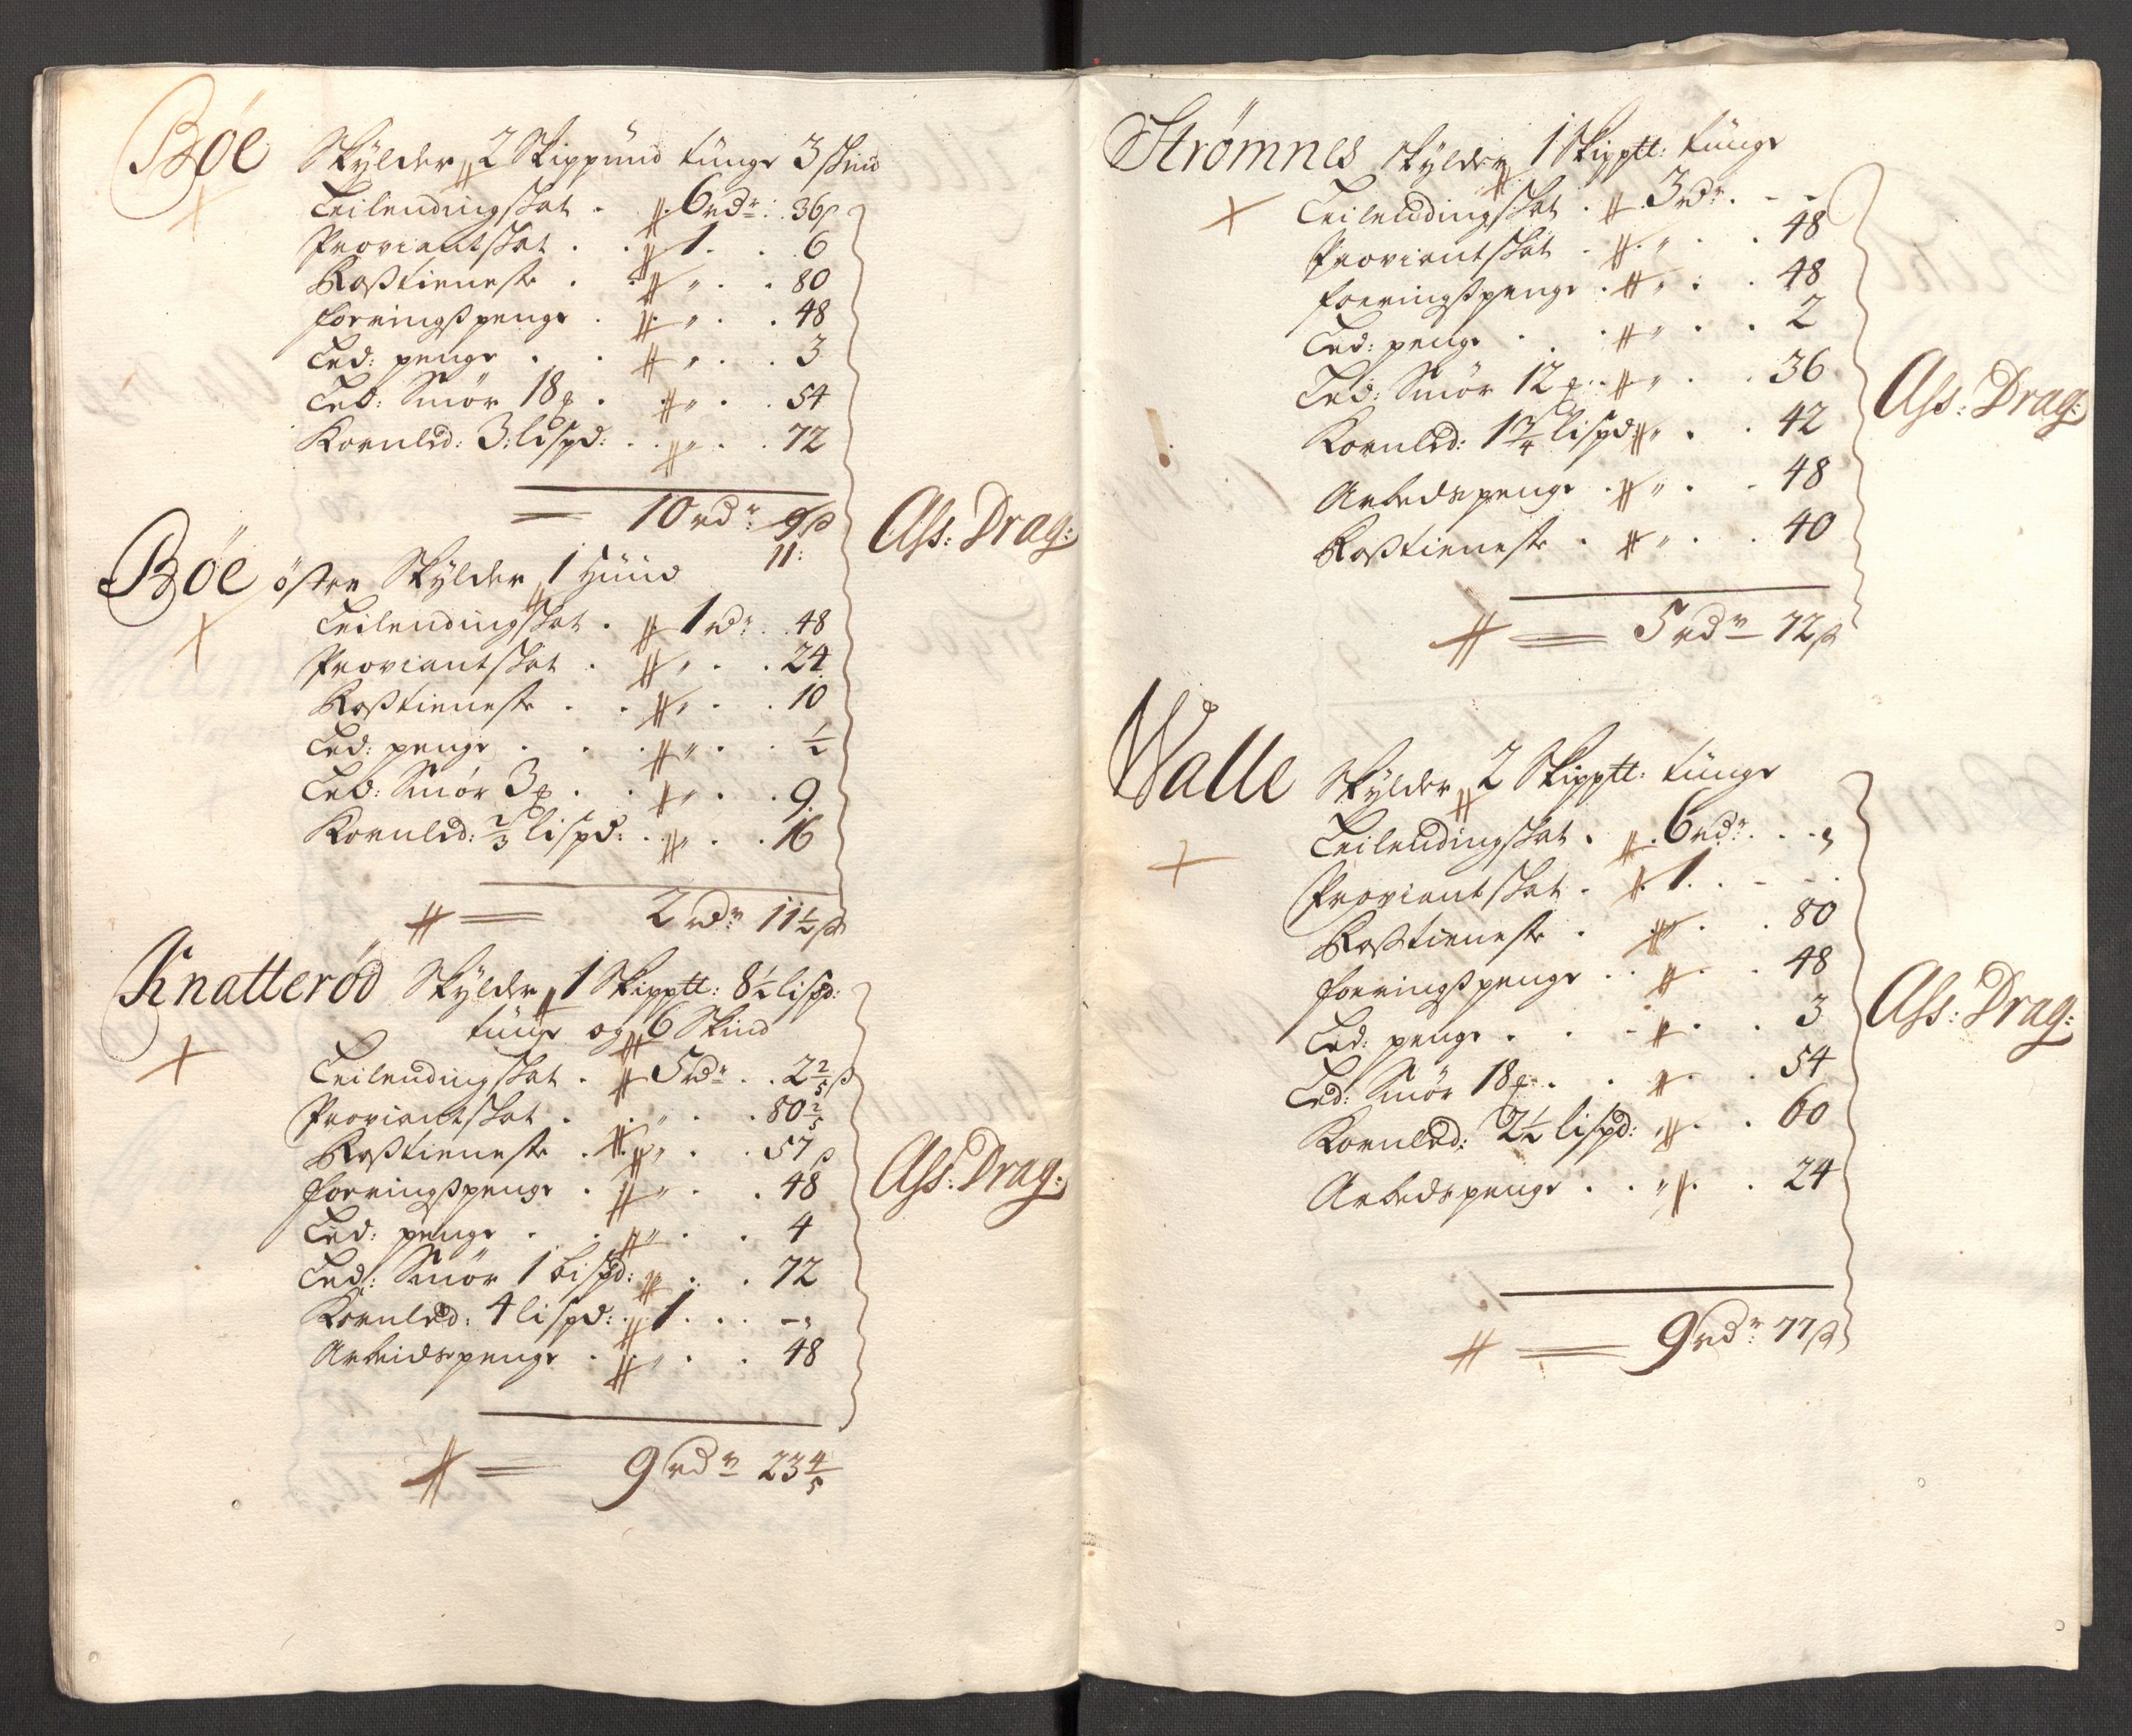 Bøe Skylder 2 Skippund tunge 3 skind
Leilendingskat . 6 rdr: 36 ß
Proviantskat . . 1 . . 6
Rosstieneste . . " . . 80
foeringsspenge . " . . 48
Led: penge . . " . . 3
Led: Smør 18 p . " . . 54
Kornled: 3: lispd: . " . . 72
10 rdr: 9 ß
11:
Ass: Drag:
Bøe østre Skylder 1 Huud
Leilendingskat . 1 rdr: 48
Proviantskat . " . . 24
Rosstieneste . . " . . 10
Led: penge . . . " . . ½
Led: Smør 3 p . . " . . 9.
Kornled: 2/3 lispd: . " . . 16
2 rdr 11½ ß
Knatterød Skylder 1 Skippt: 8½ lispd:
tunge og 6 Skind
Leilendingskat . 5 rdr . . 2 2/5 ß
Proviantskat . . " . . 80 2/5
Rosstieneste . " . . 57 ß
foeringsspenge . " . . 48
Led: penge . . " . . 4
Led: Smør 1 bispd: " . . 72
Kornled: 4 lispd: . 1 . . . - "
Arbeidspenge . . " . . 48
9 rdr 23 4/5
Ass: Drag:
Strømnes skylder 1 Skippt: tunge
Leilendingskat . 3 rdr . - -
Proviantskat . " . . 48
foeringsspenge . " . . 48
Led: penge . . " . . 2
Led: Smør 12 p . " . . 36
Kornled: 1 3/4 lispd: " . . 42
Arbedspenge . " . . 48
Rosstieneste . " . . 40
5 rdr 72 ß
Ass: Drag:
Walle Skylder 2 Skippt: tunge
Leilendingskat . 6 rdr . . "
Proviantskat . 1 . . - -
Rosstieneste . " . . 80
foeringsspenge . . " . . 48
Led: penge . . - " . . 3
Led: Smør 18 p . . " . . 54
Kornled: 2½ lispd: " . . 60
Arbedspenge . . " . . 24
9 rdr: 77 ß
Ass: Drag: